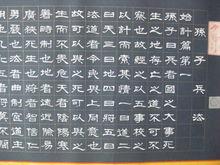 孫子兵法
始計篇第一
孫子曰兵者國之大事死
生之地存亡之道不可不
察也故經之以五事校之
以計而索其情一曰道二
曰天三曰地四曰將五曰
法道者令民與上同意也
故可以與之死可以與之
生而不畏危天者陰陽寒
暑時制也地者遠近險易
廣狹死生也將者智信仁
勇嚴也法者曲制官道主